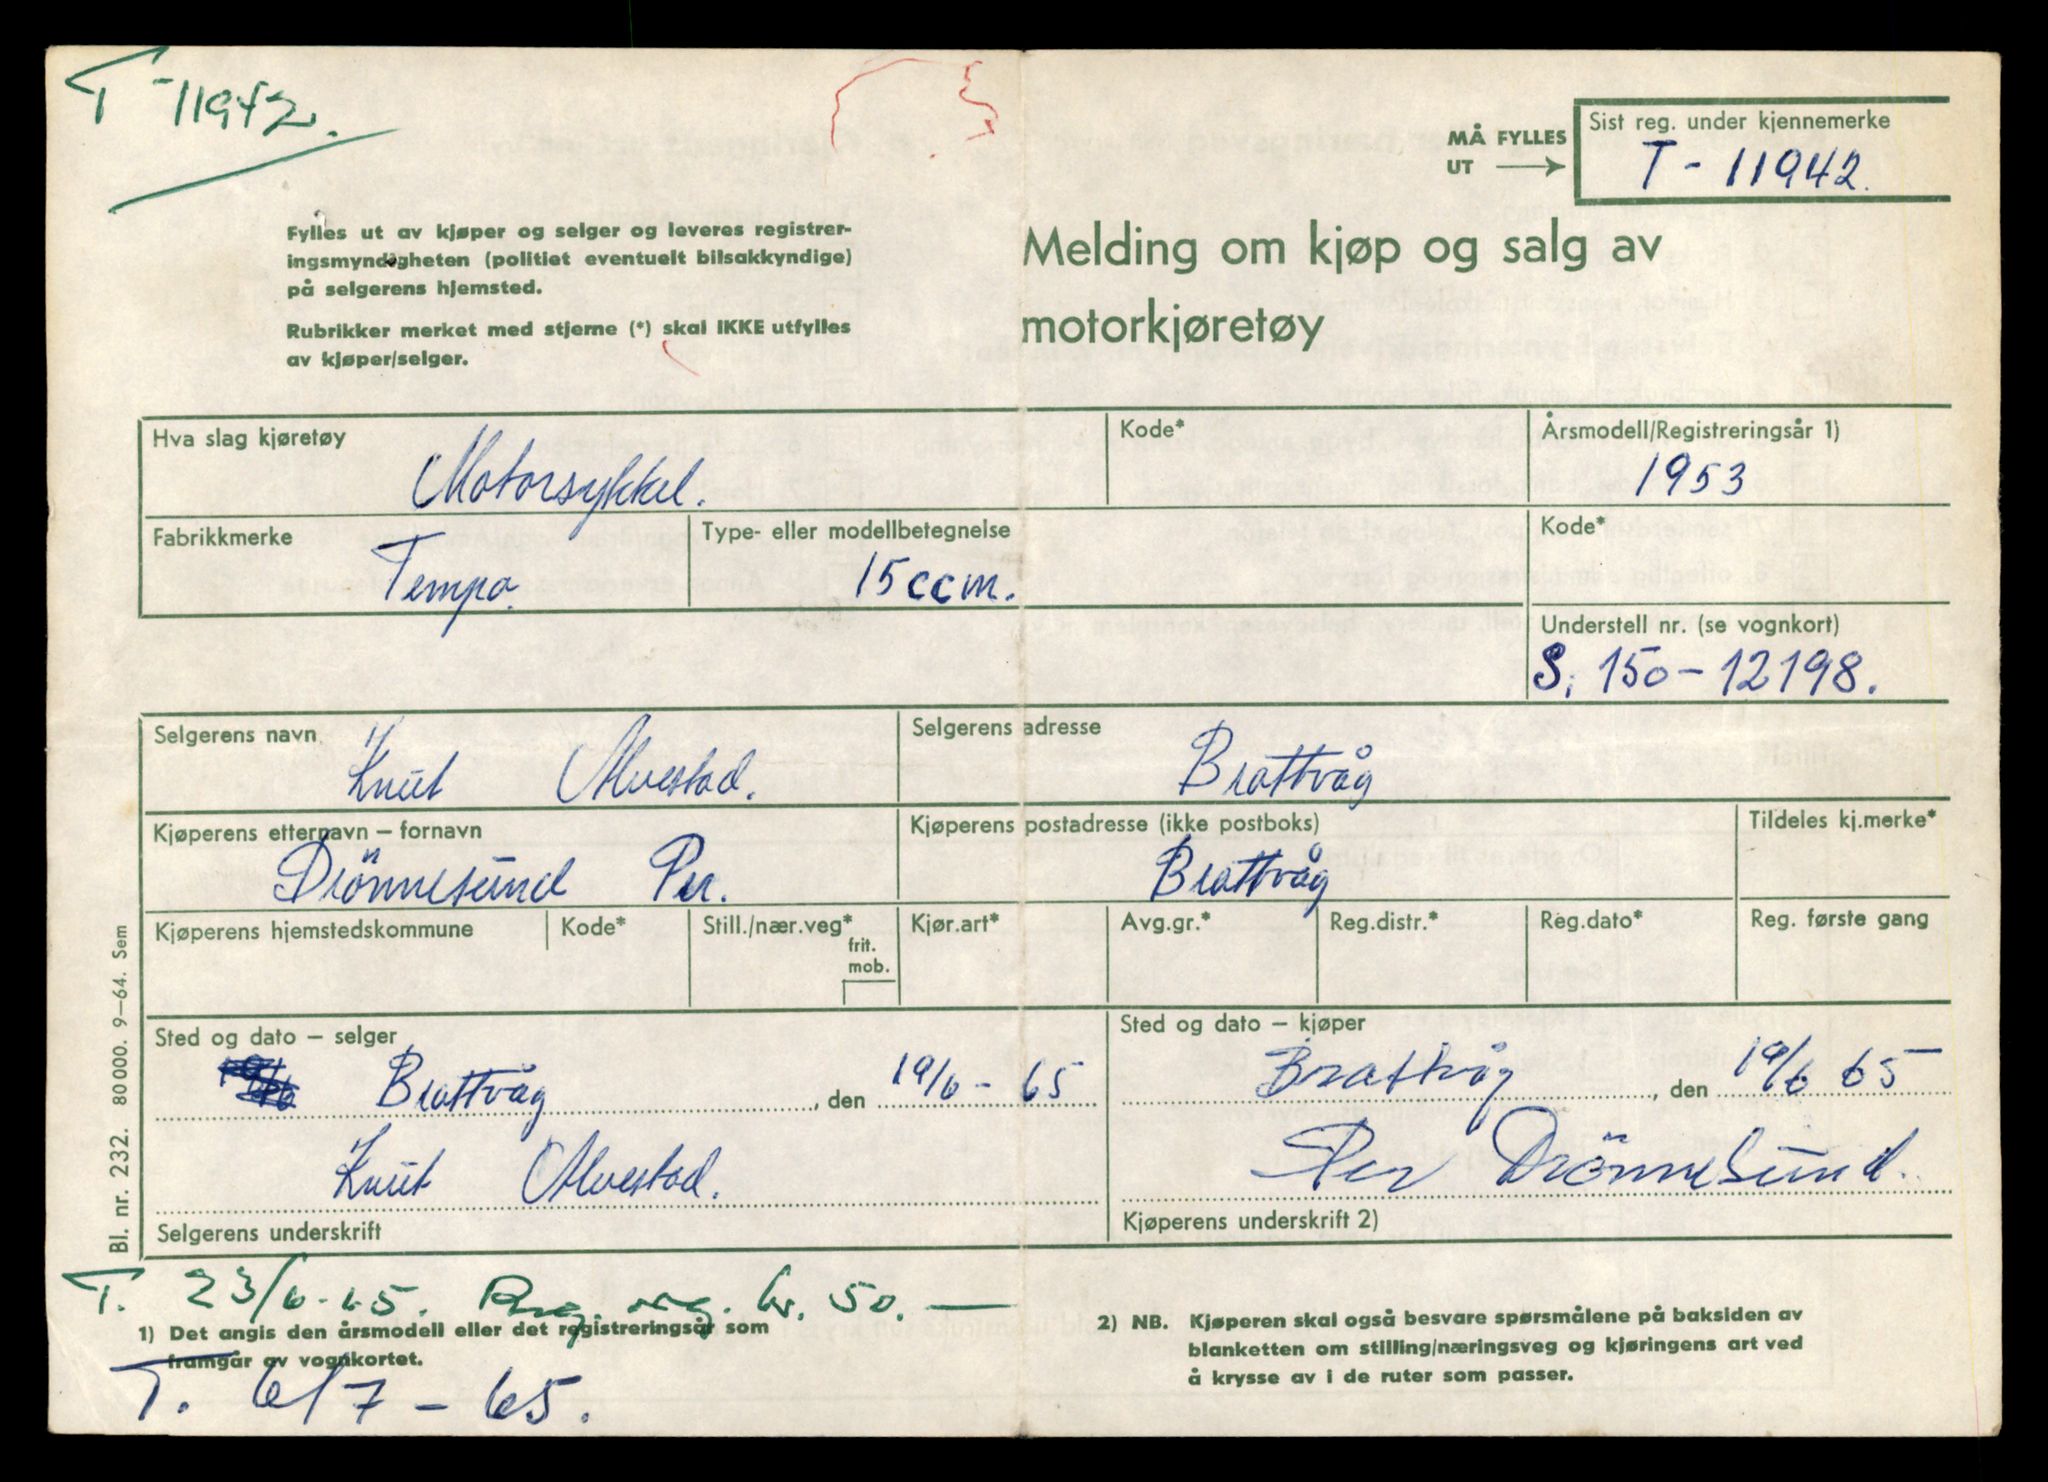 T-11942.
MÅ FYLLES
UT
Sist reg. under kjennemerke
T - 11942.
Fylles ut av kjøper og selger og leveres registrer-
ingsmyndigheten (politiet eventuelt bilsakkyndige)
på selgerens hjemsted.
Rubrikker merket med stjerne (*) skal IKKE utfylles
av kjøper/selger.
Melding om kjøp og salg av
motorkjøretøy
Hva slag kjøretøy
Motorsykkel.
Kode*
Årsmodell/Registreringsår 1)
1953
Fabrikkmerke
Tempo.
Type- eller modellbetegnelse
15 ccm.
Kode*
Understell nr. (se vognkort)
S. 150-12198.
Selgerens navn
Knut Alvestad.
Selgerens adresse
Brattvåg
Kjøperens etternavn – fornavn
Drönnesund Per.
Kjøperens postadresse (ikke postboks)
Brattvåg
Tildeles kj.merke*
Kjøperens hjemstedskommune
Kode*
Still./nær.veg*
frit.
mob.
Kjør.art*
Avg.gr.*
Reg.distr.*
Reg.dato*
Reg. første gang
Sted og dato – selger
Brattvåg, den 19/6 - 65
Knut Alvestad.
Selgerens underskrift
Sted og dato – kjøper
Brattvåg, den 19/6 65
Per Drönnesund.
Kjøperens underskrift 2)
Bl. nr. 232. 80 000. 9–64. Sem
T. 23/6-65. kr. 50.—
1) Det angis den årsmodell eller det registreringsår som
framgår av vognkortet.
T. 6/7 - 65.
2) NB. Kjøperen skal også besvare spørsmålene på baksiden av
blanketten om stilling/næringsveg og kjøringens art ved
å krysse av i de ruter som passer.